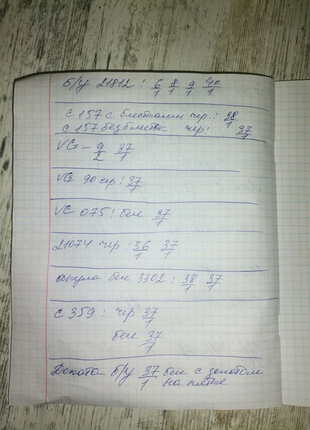 б/у 21812 : 6/1 8/1 9/1 40/1
С 157 с блестками чер. : 38/1
С 157 без блесток чер : 37/1
VG – 9/2 37/1
VG 90 чер : 37/1
VC 075 : беж 37/1
21074 чер : 36/1 37/1
бел 3302 : 38/1 37/1
С 359 : чер 37/1
бел 37/1
Дакота б/у 37/1 бел с золотом
на пятке